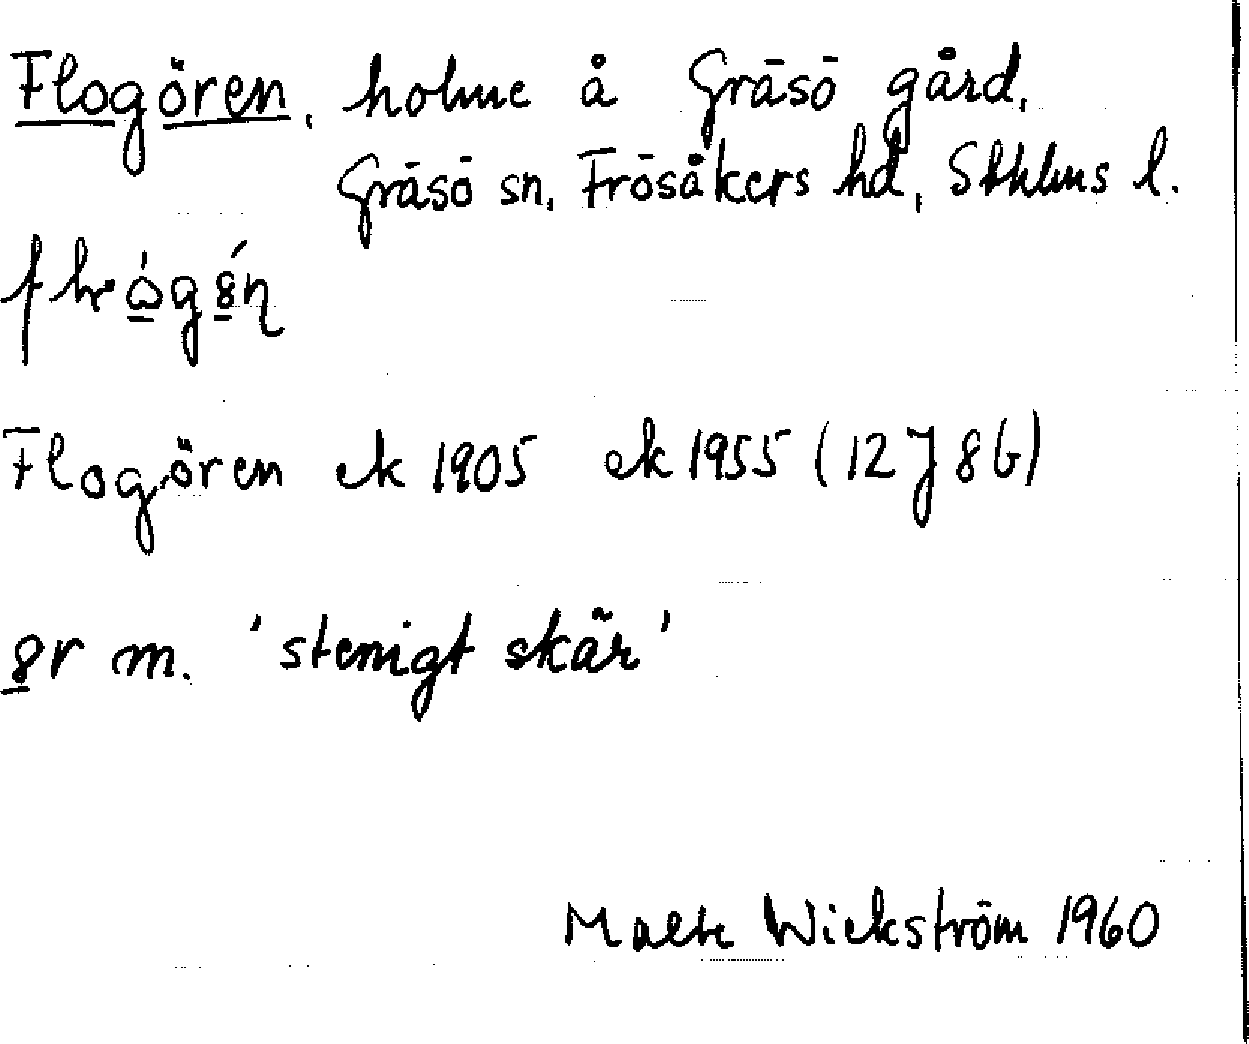 Flogören, holme å Gräsö gård,
Gräsö sn, Frösåkers hd, Sthlms l.
Flogören ek 1905 ek 1955 (12 J 8 b)
m. 'stenigt skär'
Malte Wickström 1960